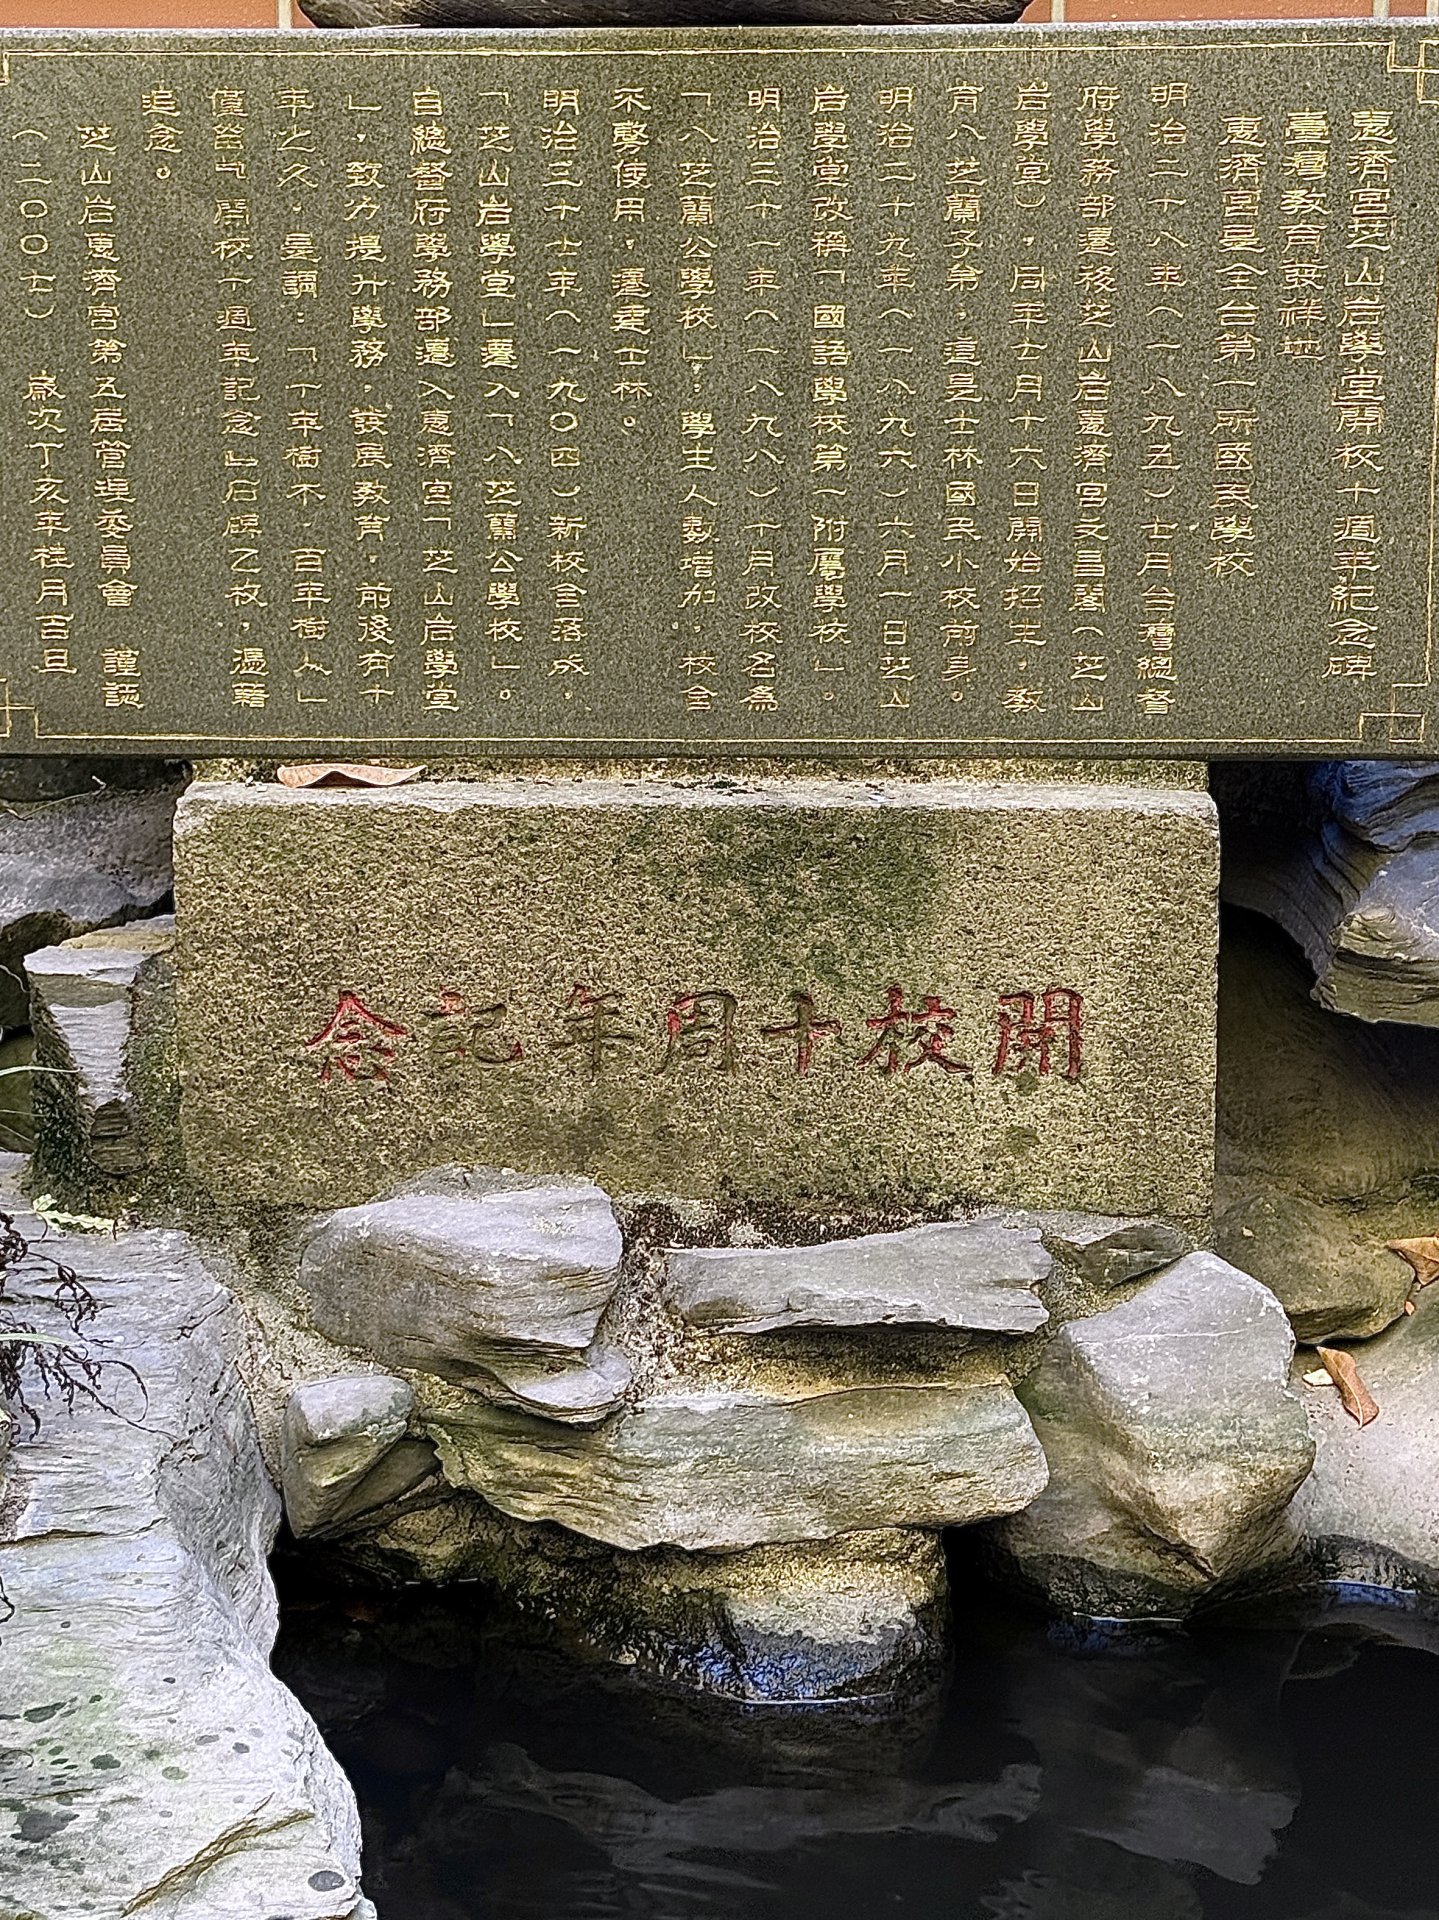 惠濟宮芝山岩學堂開校十週年紀念碑
臺灣教育發祥地
惠濟宮是全台第一所國民學校
明治二十八年（一八九五）七月台灣總督
府學務部遷移芝山岩惠濟宮文昌閣（芝山
岩學堂），同年七月十六日開始招生，教
育八芝蘭子弟，這是士林國民小校前身。
明治二十九年（一八九六）六月一日芝山
岩學堂改稱「國語學校第一附屬學校」。
明治三十一年（一八九八）十月改校名為
「八芝蘭公學校」，學生人數增加，校舍
不敷使用，遷建士林。
明治三十七年（一九〇四）新校舍落成，
「芝山岩學堂」遷入「八芝蘭公學校」。
自總督府學務部遷入惠濟宮「芝山岩學堂
」，致力提升學務，發展教育，前後有十
年之久，是謂：「十年樹木，百年樹人」
僅留『開校十週年記念』石碑乙枚，憑藉
追念。
芝山岩惠濟宮第五屆管理委員會 謹誌
（二〇〇七） 歲次丁亥年桂月吉旦
開校十周年記念